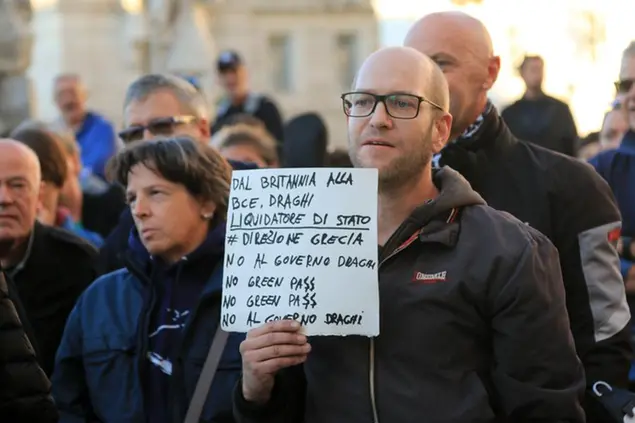 DAL BRITANNIA ALLA
BCE, DRAGHI
LIQUIDATORE DI STATO
# DIREZIONE GRECIA
NO AL GOVERNO DRAGHI
NO GREEN PA$$
NO GREEN PA$$
NO AL GOVERNO DRAGHI